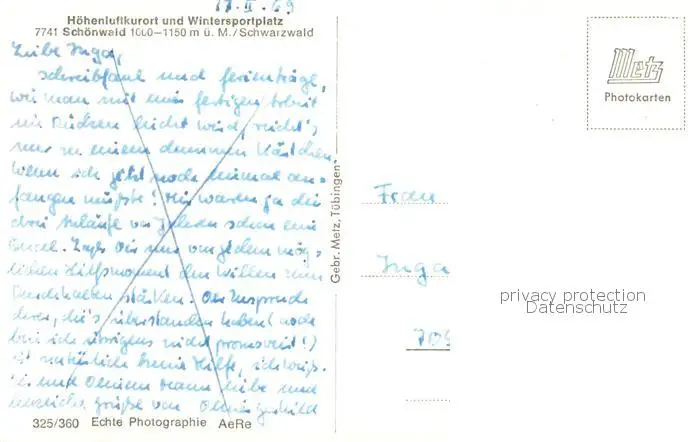 17. II. 69
Höhenluftkurort und Wintersportplatz
7741 Schönwald 1000–1150 m ü. M./Schwarzwald
Liebe Inga,
schreibfaul und ferienträge,
wie man mit einer fertigen Arbeit
im Rücken leicht wird, reicht's
nur zu einem dummen Kärtchen.
Wenn ich jetzt noch einmal an-
fangen müßte! Mir waren ja die
drei Anläufe von schon ein
Laß Dir nur von jedem mög-
lichen Hilfsmoment den Willen zum
Durchhalten stärken. Der Zuspruch
derer, die's überstanden haben (noch
bin ich übrigens nicht promoviert!)
ist natürlich keine Hilfe, ich weiß.
Dir und Deinem Mann liebe und
herzliche Grüße von Deiner
325/360 Echte Photographie AeRe
Gebr. Metz, Tübingen
Metz
Photokarten
Frau
Inga
privacy protection
Datenschutz